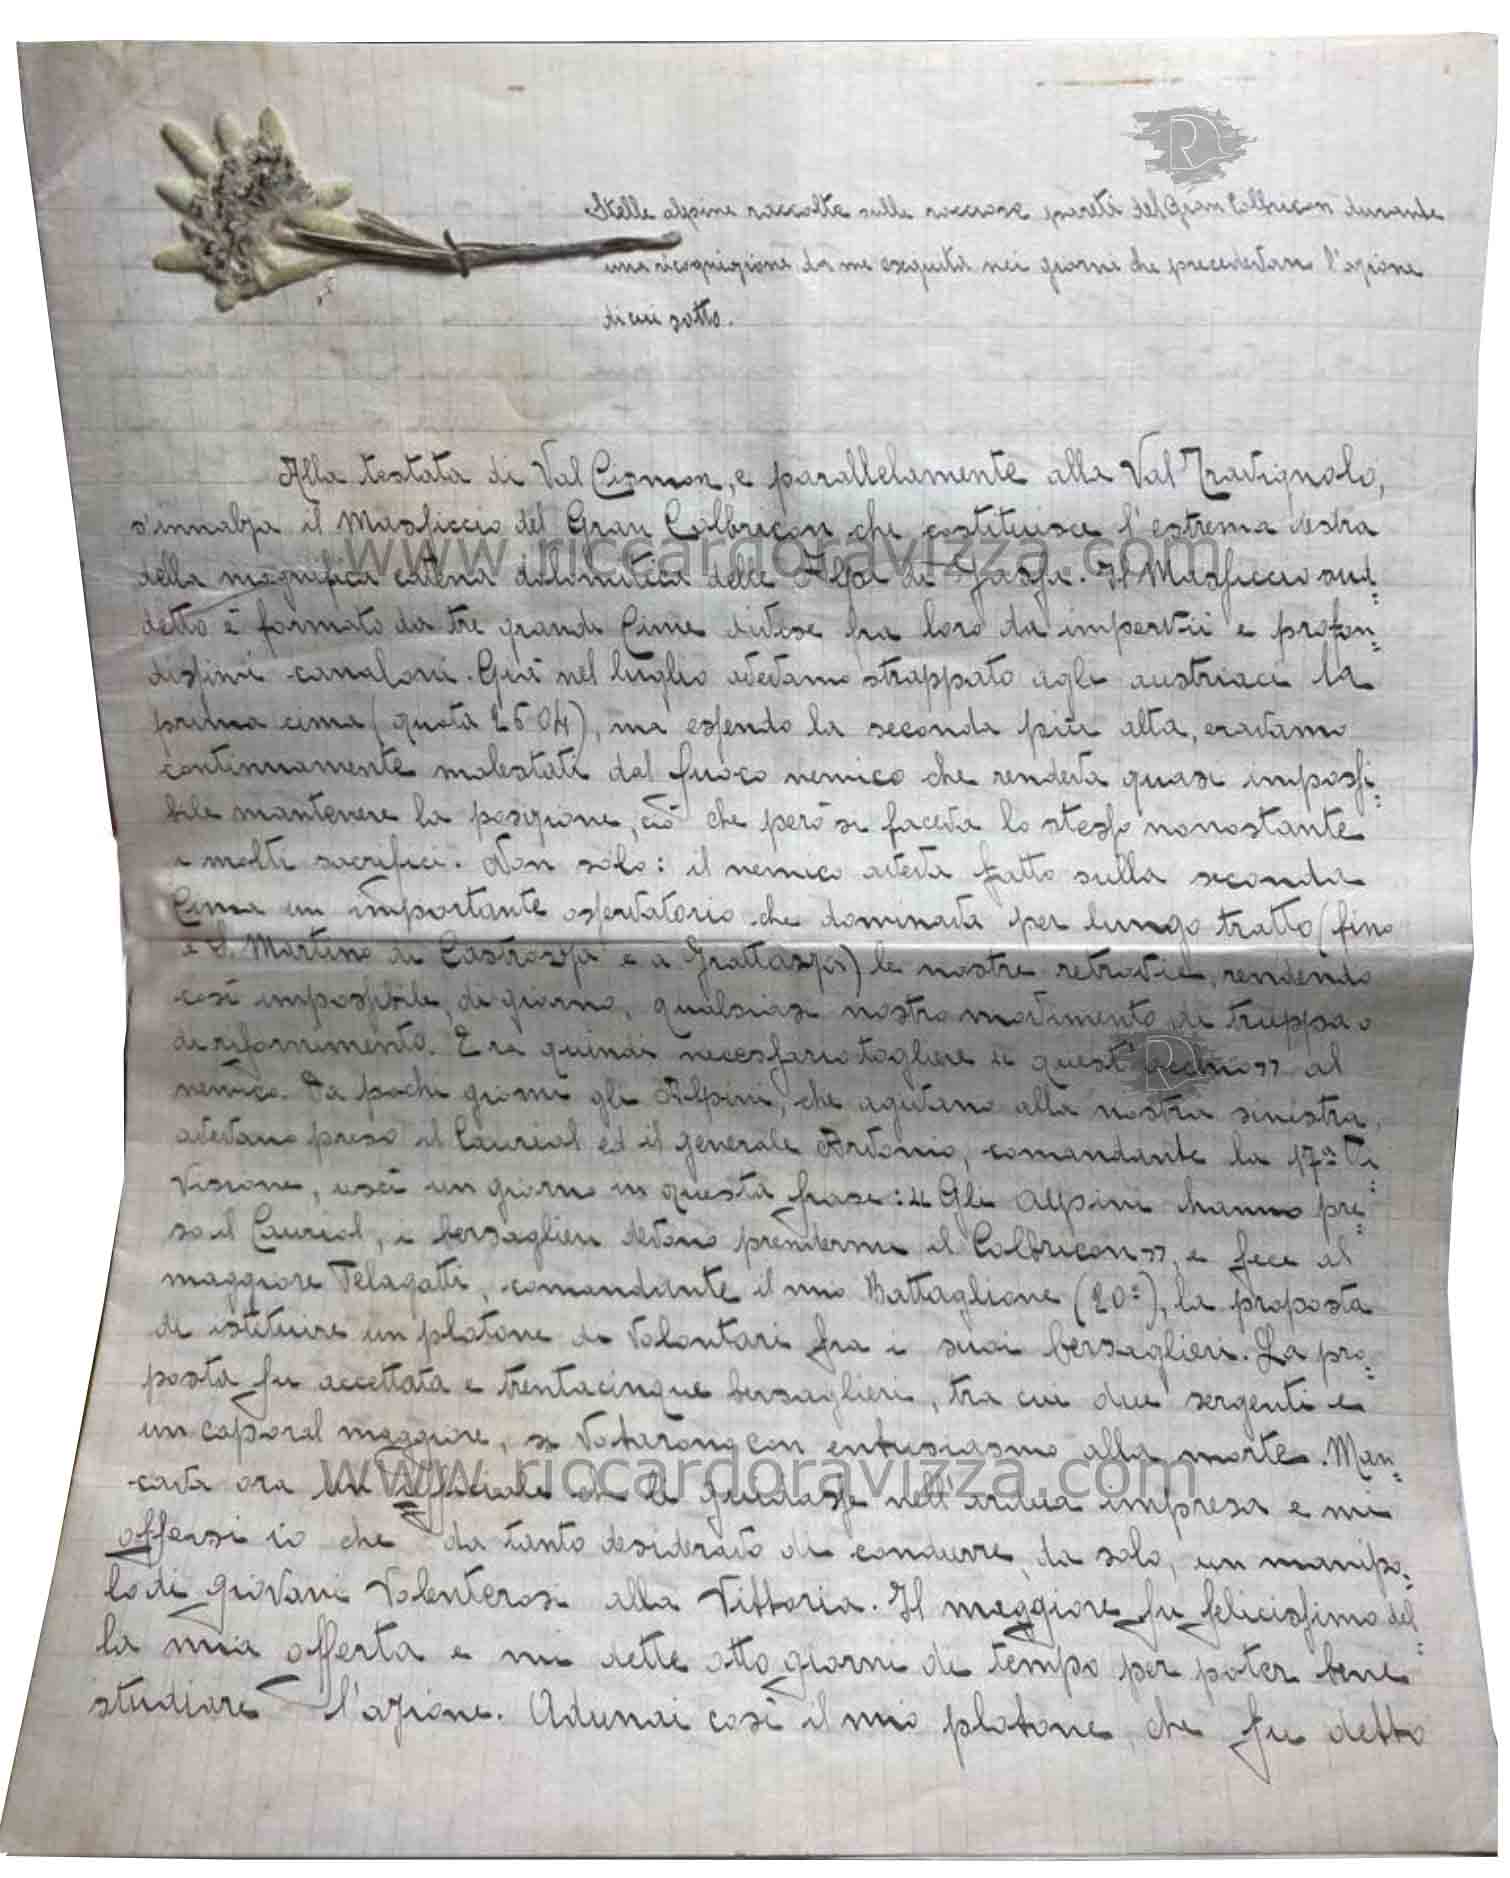 Stelle alpine raccolte sulle rocciose pareti del Gran Colbricon durante
una ricognizione da me eseguita nei giorni che precedevano l'azione
di cui sotto.
Alla testata di Val Cismon, e parallelamente alla Val Travignolo,
s'innalza il Massiccio del Gran Colbricon che costituisce l'estrema destra
della magnifica catena dolomitica delle Alpi di Fassa. Il Massiccio sud=
detto è formato da tre grandi Cime divise fra loro da impervii e profon=
dissimi canaloni. Già nel luglio avevamo strappato agli austriaci la
prima cima (quota 2604), ma essendo la seconda più alta, eravamo
continuamente molestati dal fuoco nemico che rendeva quasi impossi=
bile mantenere la posizione, ciò che però si faceva lo stesso nonostante
i molti sacrifici. Non solo: il nemico aveva fatto sulla seconda
Cima un importante osservatorio che dominava per lungo tratto (fino
a S. Martino di Castrozza e a ) le nostre retrovie, rendendo
così impossibile, di giorno, qualsiasi nostro movimento di truppa o
di rifornimento. Era quindi necessario togliere " quest'occhio " al
nemico. Da pochi giorni gli Alpini, che agivano alla nostra sinistra,
avevano preso il Cauriol ed il generale , comandante la 17ª Di=
visione, uscì un giorno in questa frase: " Gli Alpini hanno pre=
so il Cauriol, i bersaglieri devono prendermi il Colbricon ", e fece al
maggiore Telagatti, comandante il mio Battaglione (20º), la proposta
di istituire un plotone di Volontari fra i suoi bersaglieri. La pro=
posta fu accettata e trentacinque bersaglieri, tra cui due sergenti e
un caporal maggiore, si votarono con entusiasmo alla morte. Man=
cava ora un ufficiale che li guidasse nell'ardua impresa e mi
offersi io che da tanto desideravo di condurre, da solo, un manipo=
lo di giovani volenterosi alla Vittoria. Il maggiore fu felicissimo del=
la mia offerta e mi dette otto giorni di tempo per poter bene
studiare l'azione. Adunai così il mio plotone, che fu detto
www.riccardoravizza.com
www.riccardoravizza.com